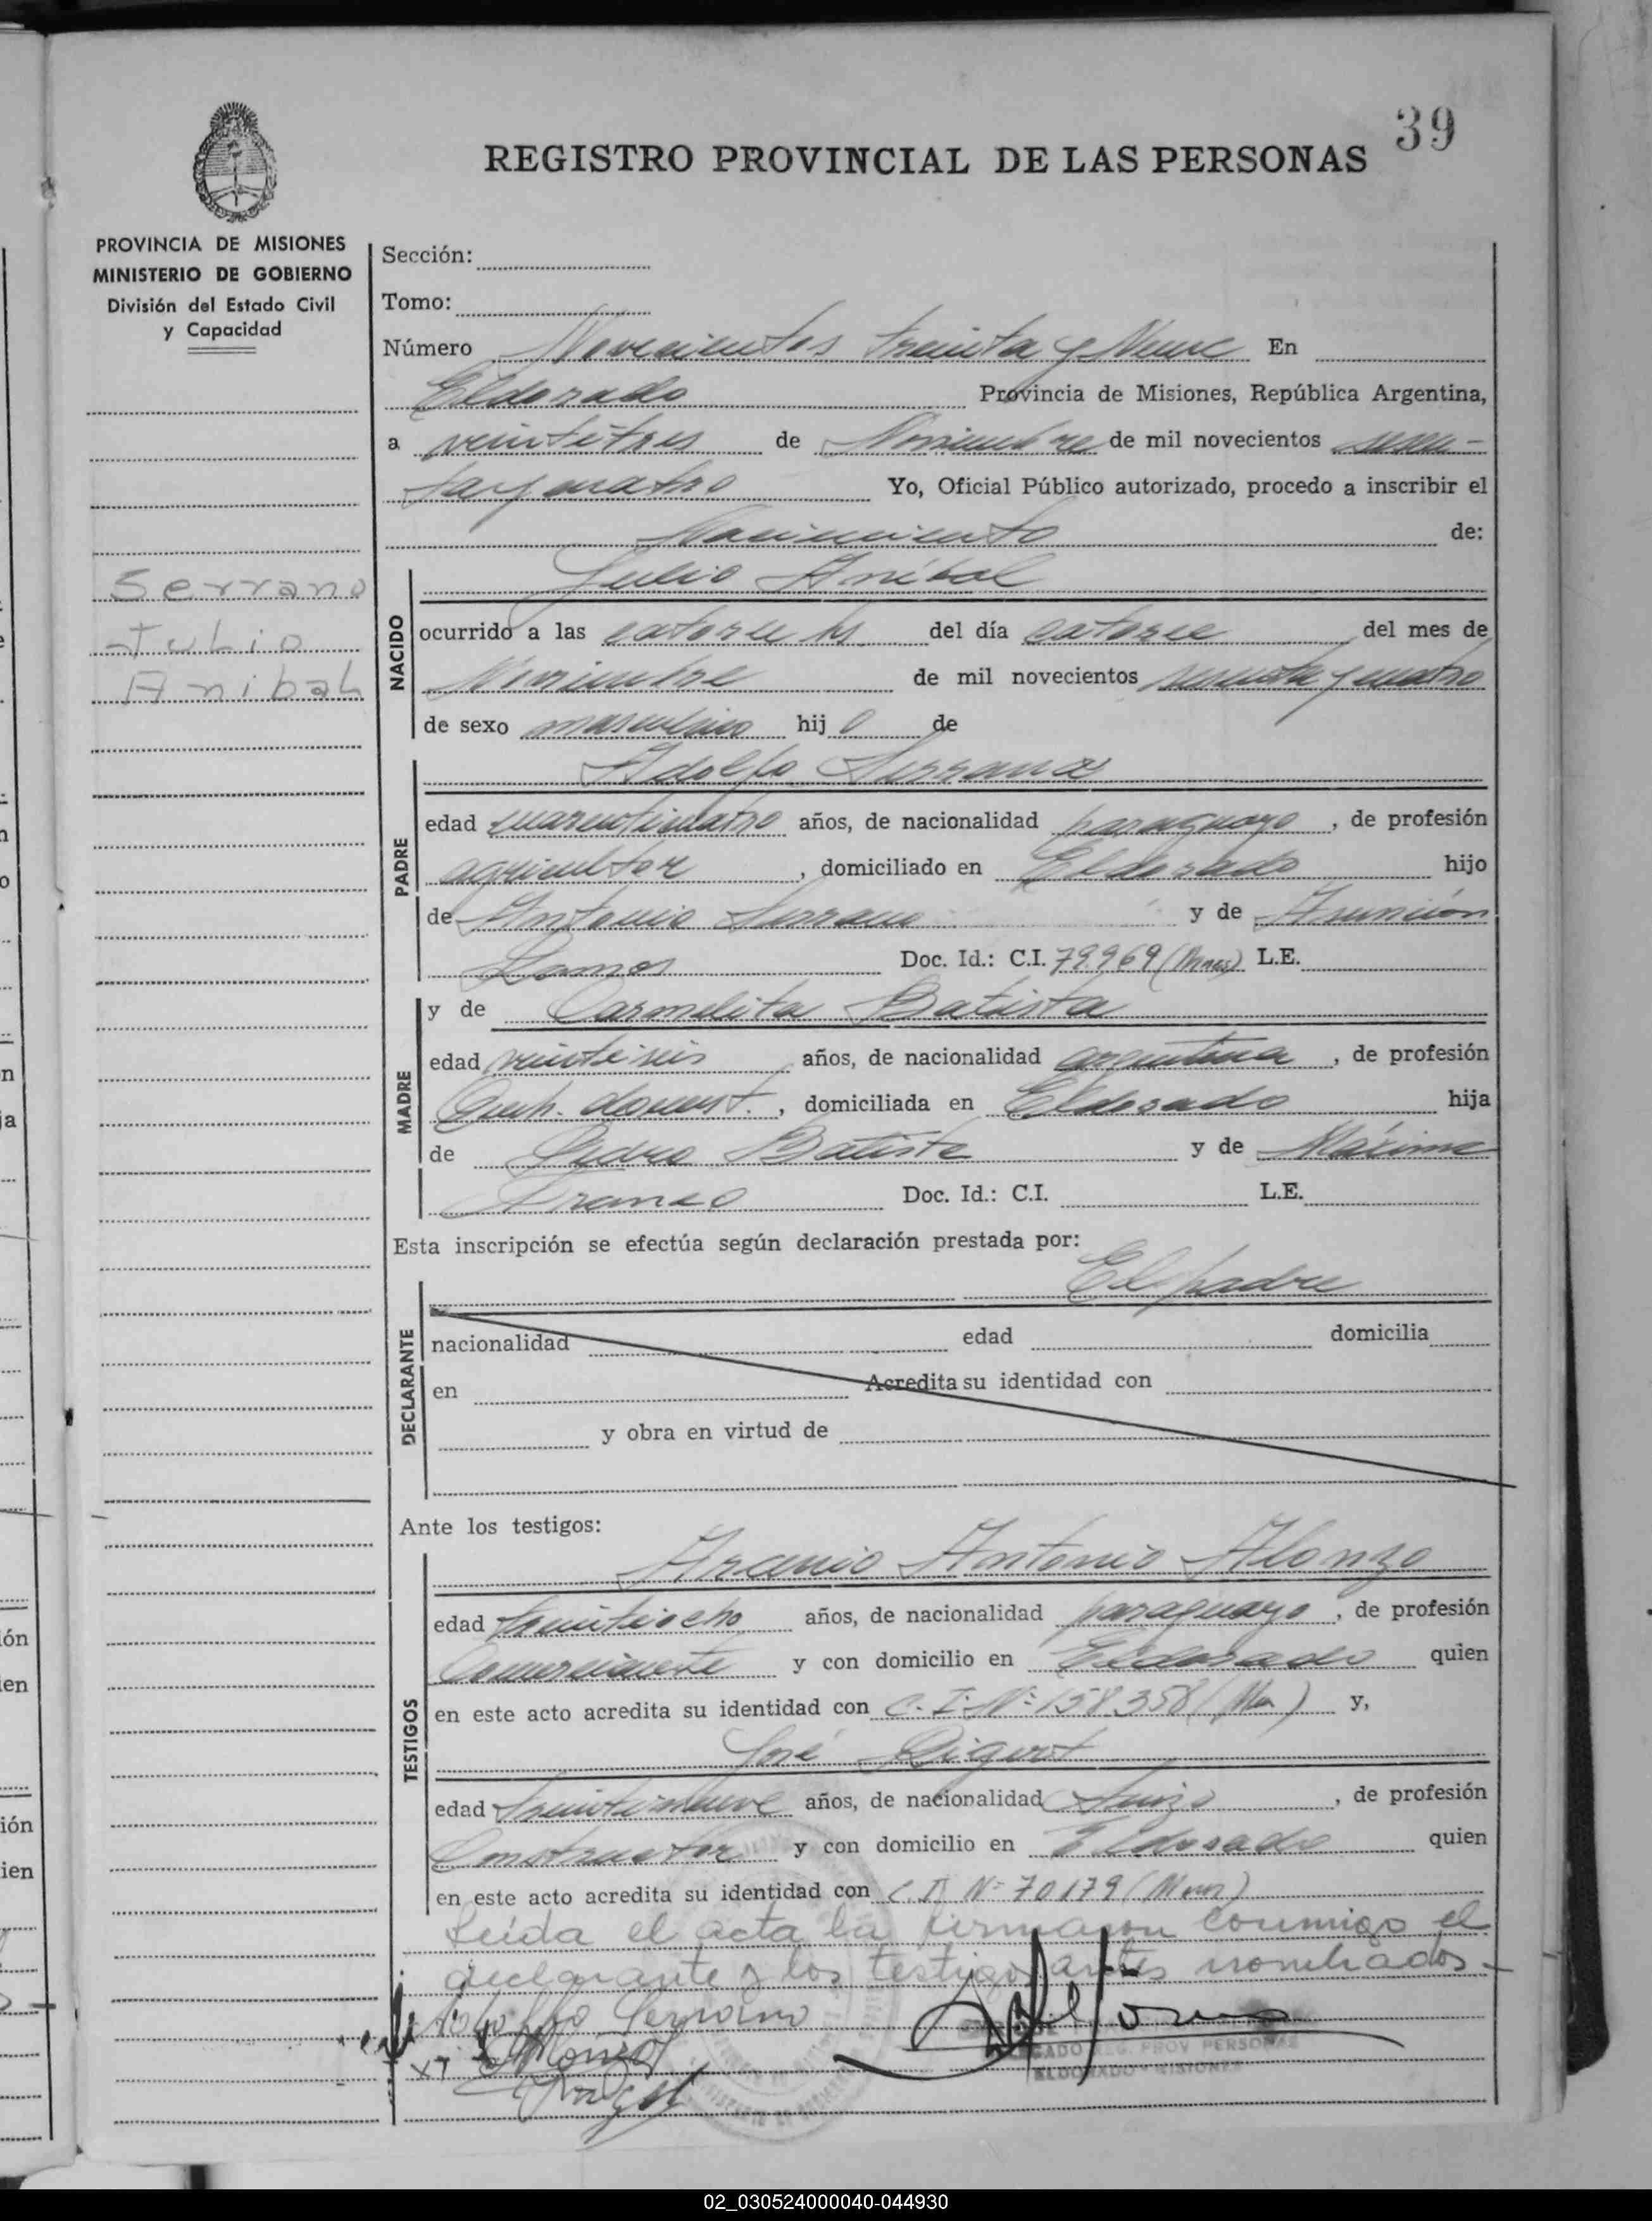 39
REGISTRO PROVINCIAL DE LAS PERSONAS
PROVINCIA DE MISIONES
MINISTERIO DE GOBIERNO
División del Estado Civil
y Capacidad
Serrano
Julio
Anibal
Sección:
Tomo:
Número Novecientos treinta y Nueve En
Eldorado Provincia de Misiones, República Argentina,
a veintitres de Noviembre de mil novecientos sesen-
ta y cuatro Yo, Oficial Público autorizado, procedo a inscribir el
Nacimiento de:
NACIDO
Julio Anibal
ocurrido a las catorce hs del día catorce del mes de
Noviembre de mil novecientos sesenta y cuatro
de sexo masculino hij o de
PADRE
Adolfo Serrano
edad cuarenticuatro años, de nacionalidad paraguayo, de profesión
agricultor, domiciliado en Eldorado hijo
de Antonio Serrano y de Asunción
Ramos Doc. Id.: C.I. 79.969 (Mnes) L.E.
MADRE
y de Carmelita Batista
edad veintiseis años, de nacionalidad argentina, de profesión
Queh. domest., domiciliada en Eldorado hija
de Pedro Batista y de Máxima
Franco Doc. Id.: C.I. L.E.
Esta inscripción se efectúa según declaración prestada por:
El padre
DECLARANTE
nacionalidad edad domicilia
en Acredita su identidad con
y obra en virtud de
Ante los testigos:
TESTIGOS
Arcenio Antonio Alonzo
edad treintiocho años, de nacionalidad paraguayo, de profesión
Comerciante y con domicilio en Eldorado quien
en este acto acredita su identidad con C. I. Nº 158.358 y,
José
edad treintinueve años, de nacionalidad Suizo, de profesión
Constructor y con domicilio en Eldorado quien
en este acto acredita su identidad con C.I. Nº 70179
Leida el acta la firmaron conmigo el
declarante y los testigos antes nombrados-
Adolfo Serrano
REG. PROV PERSONAS
ELDORADO - MISIONES
02_030524000040-044930